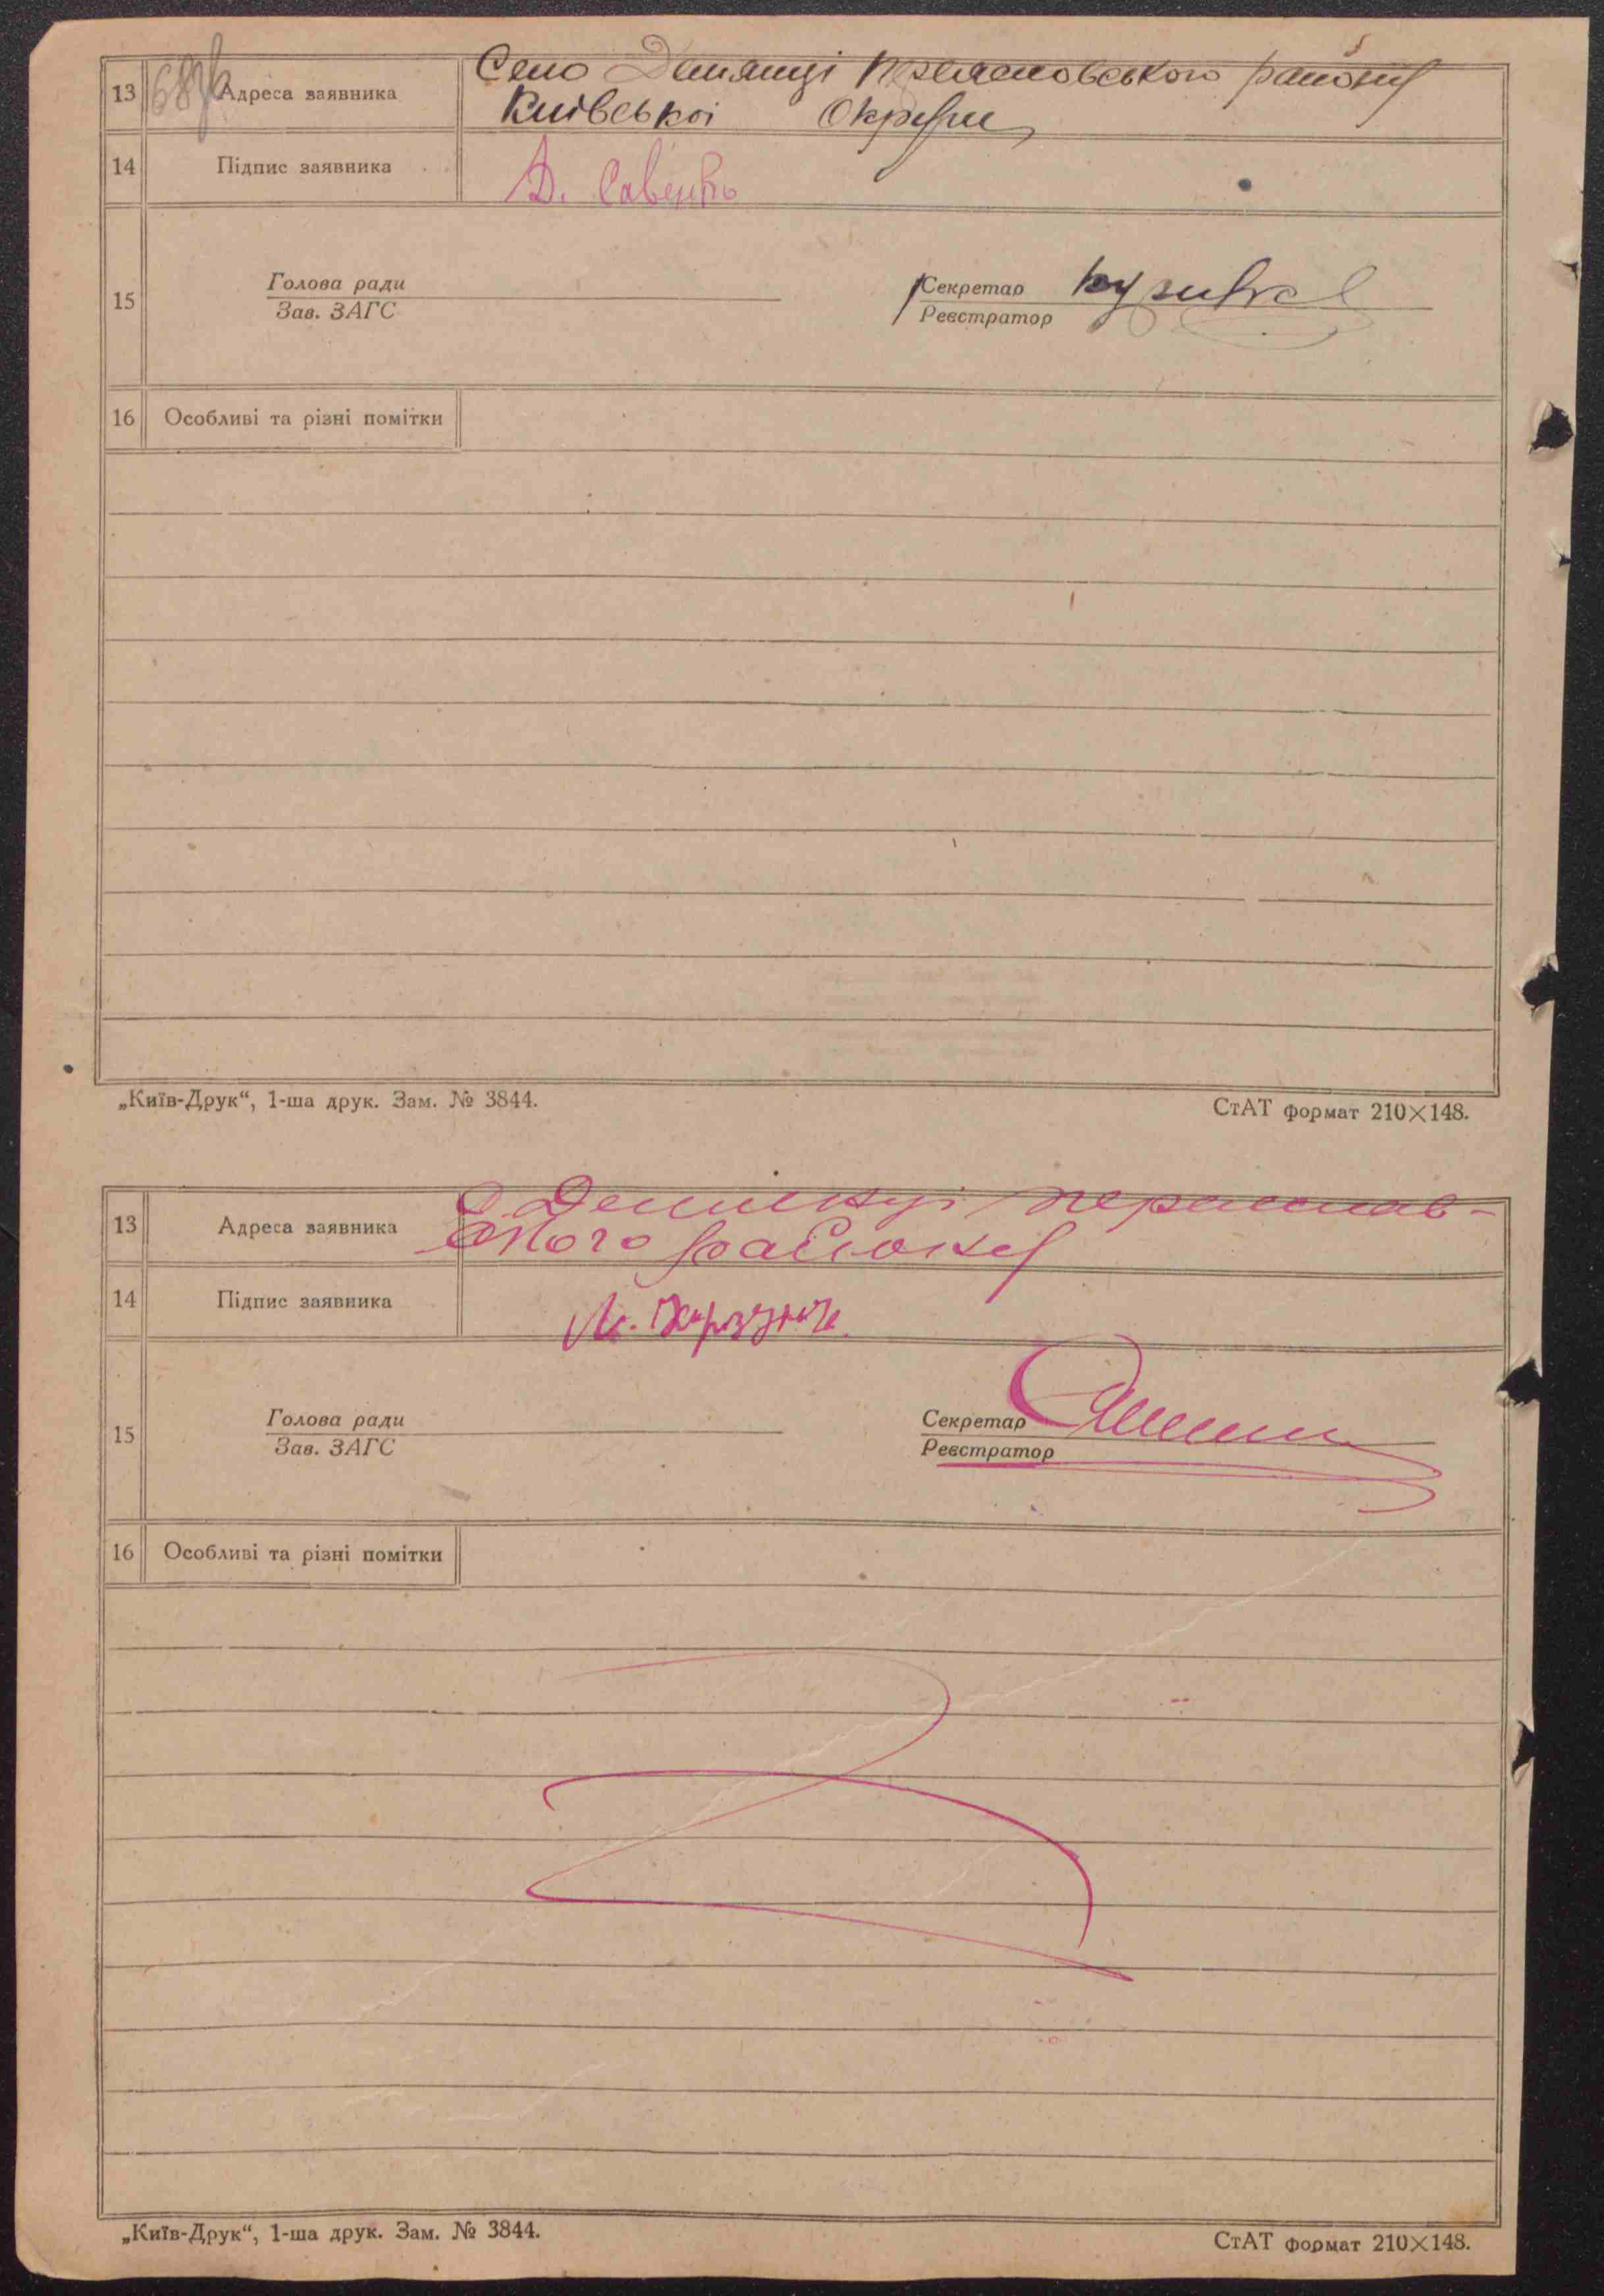 13 Адреса заявника Село Демянці Переясловського району
Київської Округи
14 Підпис заявника Д. Савенко
15 Голова ради
Зав. ЗАГС
Секретар
Реєстратор
16 Особливі та різні помітки
„Київ-Друк“, 1-ша друк. Зам. № 3844. СтАТ формат 210×148.
13 Адреса заявника С. Демянці переяслав-
ського району
14 Підпис заявника
15 Голова ради
Зав. ЗАГС
Секретар
Реєстратор
16 Особливі та різні помітки
„Київ-Друк“, 1-ша друк. Зам. № 3844. СтАТ формат 210×148.